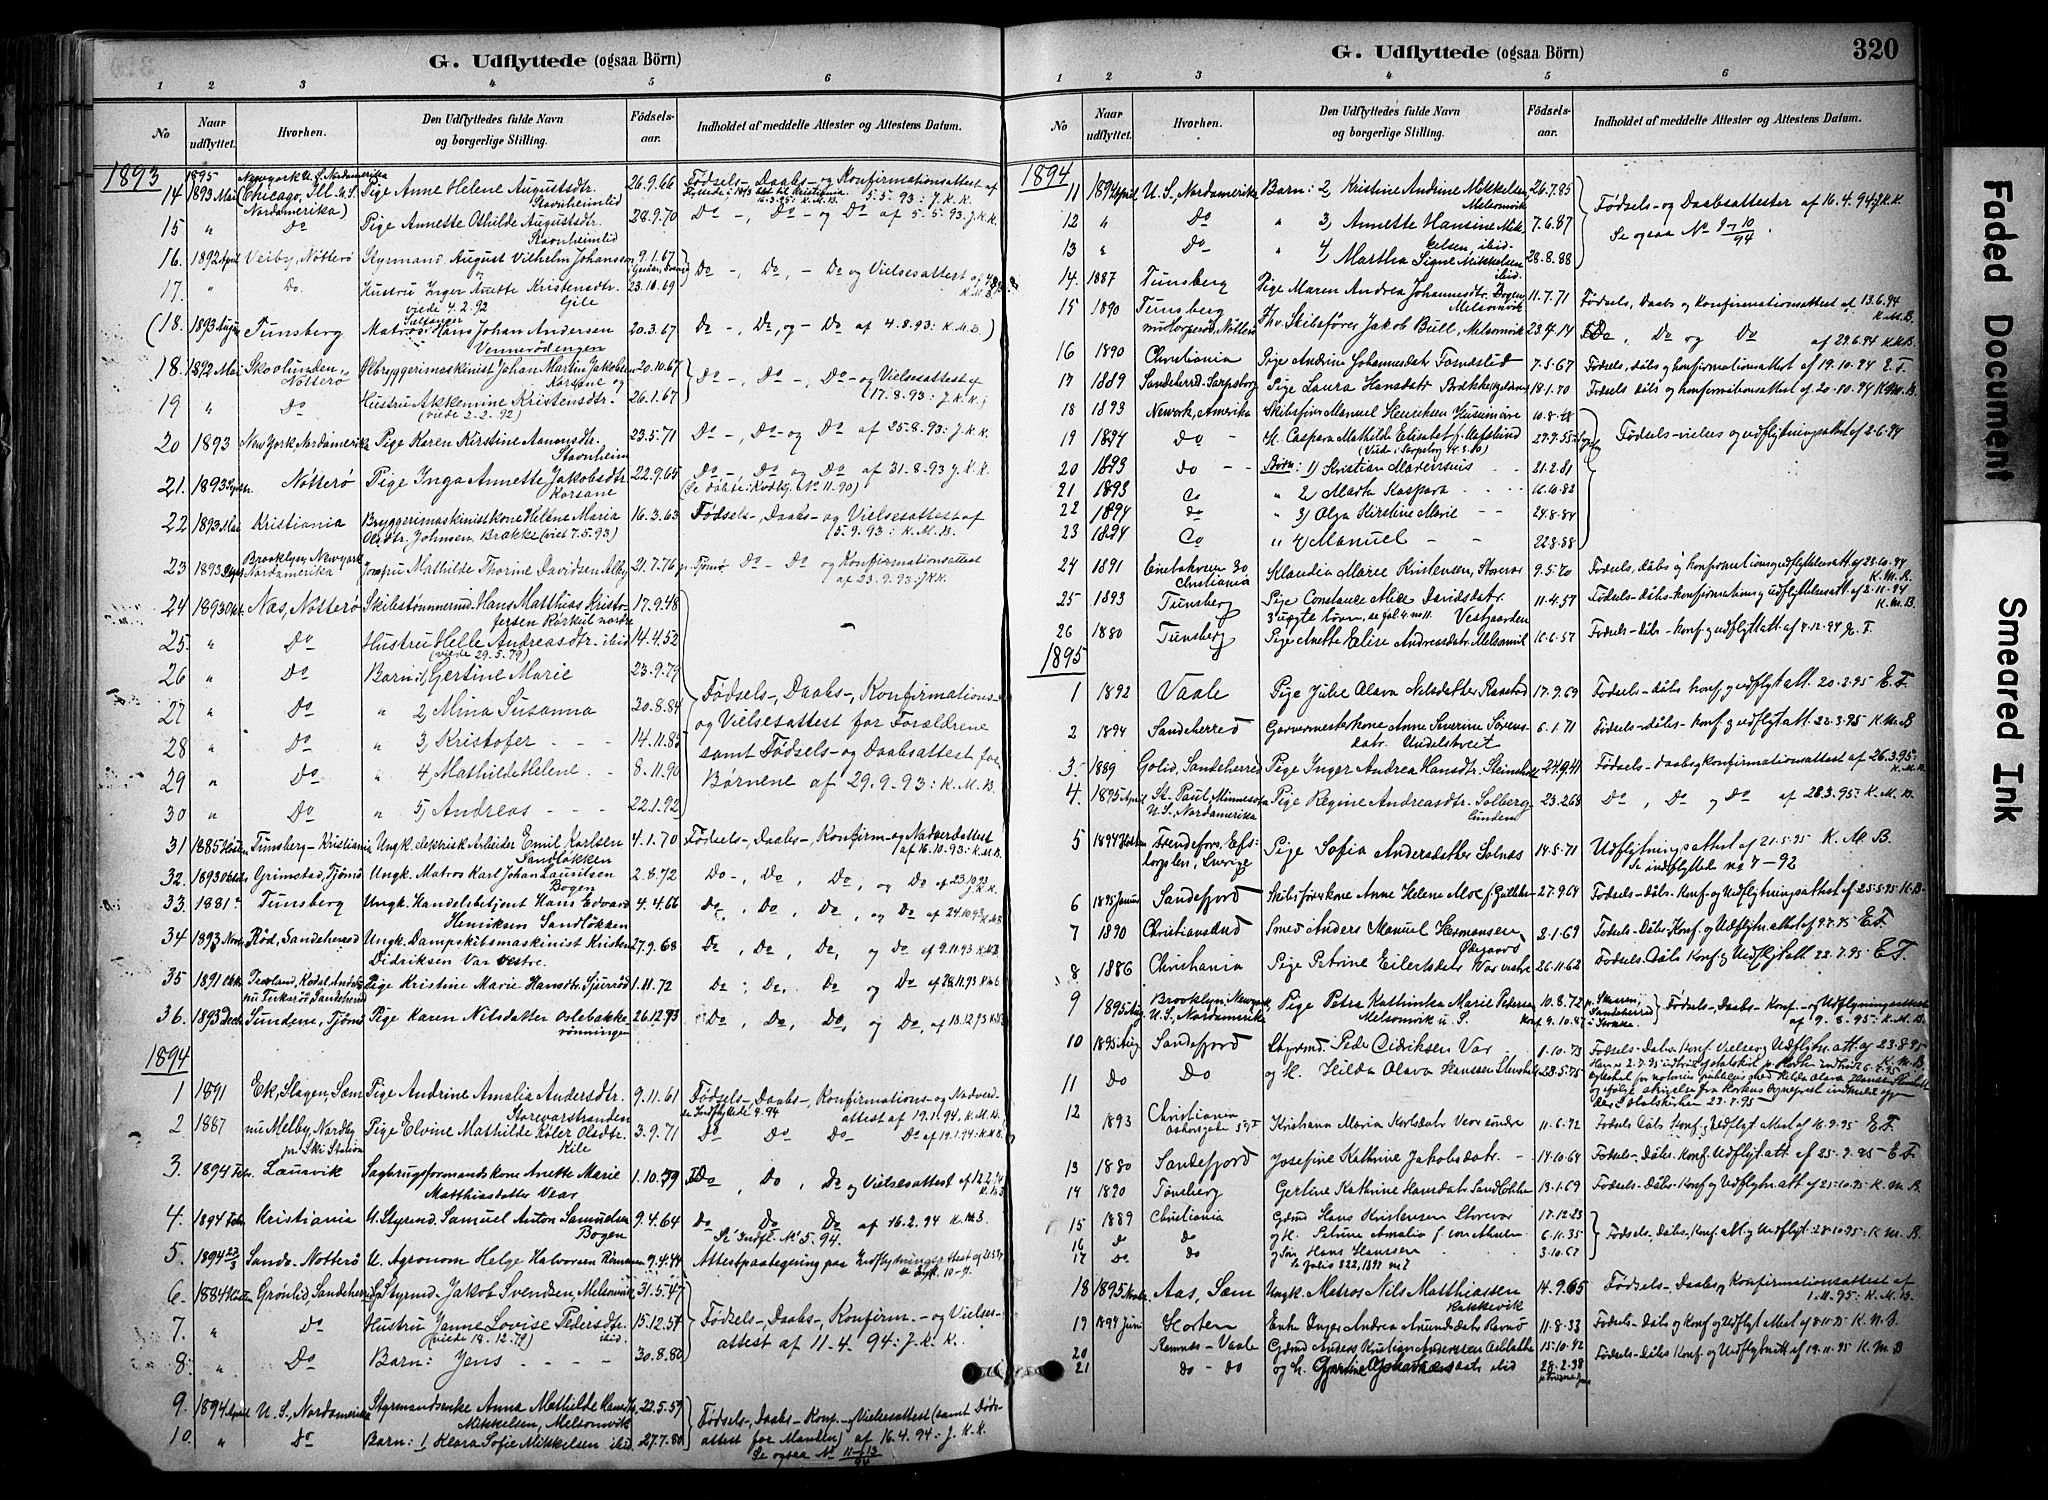 G. Udflyttede (ogsaa Börn)
1 2 3 4 5 6
No
Naar udflyttet.
Hvorhen.
Den Udflyttedes fulde Navn og borgerlige Stilling.
Födsels-aar.
Indholdet af meddelte Attester og Attestens Datum.
1893
14 1893 Mai (Chicago, Ill. U.S. Nordamerika) Pige Anne Helene Augustsdtr. Stavnheimlid 26.9.66 Fødsels-, Daabs- og Konfirmationsattest af 5.5.93: J.K.K.
15 " Do Pige Annette Othilde Augustsdtr. Stavnheimlid 28.9.70 Do -, Do - og Do af 5.5.93: J.K.K.
16. 1892 April Veiby, Nötterö Styrmand August Vilhelm Johansson 9.1.67 Do -, Do, - Do og Vielsesattest af
17. " Do. Hustru Inger Anette Kristensdtr. Gile 23.10.69
viede 4.2.92
(18. 1893 Tunsberg Matros Hans Johan Andersen Vennerödengen 20.3.67 Do -, Do, og - Do af 4.8.93: K.M.B.)
18. 1892 Mai Skovlunden, Nötterö Ølbryggerimaskinist Johan Martin Jakobsen Korsane og 20.10.67 Do -, Do -, Do - og Vielsesattest af
19 " Do Hustru Akkemine Kristensdtr. (viede 2.2.92) 26.1.67 (17.8.93: J.K.K.)
20 1893 New York, Nordamerika Pige Karen Kirstine Aanonsdtr. Stavnheim 23.5.71 Do -, Do - og Do af 25.8.93: J.K.K.
21. 1893 Nötterö Pige Inga Annette Jakobsdtr. Korsane 22.9.65 Do -, Do - og Do af 31.8.93 J.K.K.
22 1893 Mai Kristiania Bryggerimaskinistkone Helene Maria Olsdtr. Johnsen, Brække (viet 7.5.93) 16.3.63 Fødsels-, Daabs- og Vielsesattest af 5.9.93: K.M.B.
23 1893 Brooklyn, Newyork Nordamerika Jomfru Mathilde Thorine Davidsen 21.7.76 Do - Do og Konfirmationsattest af 23.9.93: J.K.K.
24 1893 Okt. Næs, Nötterö Skibstømmermd. Hans Matthias Kristofersen Kirkul nordre 17.9.48
25 " Do Hustru Helle Andreasdtr. ibid (viede 29.5.79) 14.4.52
26 " Do Barn: 1, Gertine Marie 23.9.79 Fødsels-, Daabs-, Konfirmations-
27 " Do " 2, Mina Susanna 20.8.84 og Vielsesattest for Forældrene
28 " Do " 3, Kristofer - - 14.11.85 samt Fødsels- og Daabsattest for
29 " Do " 4, Mathilde Helene - 8.11.90 Børnene af 29.9.93: K.M.B.
30 " Do " 5, Andreas - - - 22.1.92
31 1885 Høsten Tunsberg - Kristiania Ungk. elektrisk Arbeider Emil Karlsen Sandløkken 4.1.70 Fødsels-, Daabs-, Konfirm- og Nadverdattest af 16.10.93: K.M.B.
32. 1893 Grimstad, Tjømö Ungk. Matros Karl Johan Lauritsen Bogen 2.8.72 Do -, Do, Do, og Do af 23.10.93 J.K.K.
33. 1881 Tunsberg Ungk. Handelsbetjent Hans Edvard Henriksen Sandløkken 4.4.66 Do, Do, Do, og Do af 24.10.93 K.M.B.
34 1893 Nov. Rød, Sandeherred Ungk. Dampskibsmaskinist Kristen Didriksen Vær vestre. 27.9.68 Do, Do, Do, og Do af 9.11.93 K.M.B.
35 1891 Okt. Pige Kristine Marie Hansdtr. Sjuerrød 1.11.72 Do, Do, Do og Do af 28.11.93 K.M.B.
36. 1893 Decbr. Sundene, Tjømö Pige Karen Nilsdatter Oslebakke-rønningen 26.12.73 Do, Do, Do, og Do af 13.12.93 K.M.B.
1894
1 1891 Ek, Slagen, Sæm Pige Andrine Amalia Andersdtr. Storevarstranden 9.11.61 Fødsels-, Daabs-, Konfirmations- og Nadverdattest af 19.1.94. K.M.B.
2 1887 nu Melby, Nordby pr Ski Station Pige Elvine Mathilde Olsdtr. Kile 3.9.71 Do Do Do Do af 19.1.94: K.M.B.
3. 1894 Febr. Laurvik Sagbrugsformandskone Anette Marie Matthiasdatter Vear 1.10.79 Do, Do, Do og Vielsesattest af 12.2.94
4. 1894 Febr. Kristiania U. Styrmd. Samuel Anton Samuelsen Bogen 9.4.64 Do Do Do af 16.2.94 K.M.B.
Se Indfl. No 5.94.
5. 1894 Sande, Nötterö U. Agronom Helge Halvorsen 9.4.44 Attestpaategning paa Indflytningsattest
6. 1884 Høsten Grönlid, Sandeherred Styrmd. Jakob Svendsen, Melsomvik 31.5.47 Fødsels-, Daabs-, Konfirm.- og Vielses-
7. " Do Hustru Janne Lovise Pedersdtr. (viede 18.12.79) ibid. 15.12.54 attest af 11.4.94: J.K.K.
8. " Do Barn: Jens - - - - 30.8.80
9. 1894 April U.S., Nordamerika Styrmandsenke Anna Mathilde Hansdtr. Mikkelsen, Melsomvik 22.5.59 Fødsels-, Daabs-, Konf.- og Vielsesattest (samt Døds-
10. " Do Barn: 1 Klara Sofie Mikkelsen ibid. 27.7.80 attest for Manden) af 16.4.94: J.K.K.
Se ogsaa No 11-13/94
G. Udflyttede (ogsaa Börn)
320
1 2 3 4 5 6
No
Naar udflyttet.
Hvorhen.
Den Udflyttedes fulde Navn og borgerlige Stilling.
Födsels-aar.
Indholdet af meddelte Attester og Attestens Datum.
1894
11 1894 April U.S., Nordamerika Barn: 2 Kristine Andrine Mikkelsen Melsomvik 26.7.85 Fødsels- og Daabsattester af 16.4.94 J.K.K.
12 " Do " 3, Annette Hansine Mikkelsen, ibid. 7.6.87 Se ogsaa No 9 og 10/94.
13 " Do " 4, Martha Signe Mikkelsen ibid 28.8.88
14. 1887 Tunsberg Pige Maren Andrea Johannesdtr. Bogen Melsomvik 11.7.71 Fødsels, Daabs og Konfirmationsattest af 13.6.94 K.M.B.
15 1890 Tunsberg Fhv. Skibsfører Jakob Bull, Melsomvik 23.4.14 Do, Do og Do af 29.6.94 K.K.B.
16 1890 Christiania Pige Andrine Johannesdatr 7.5.67 Fødsels, dåbs og konfirmationsattest af 19.10.94 E.F.
17 1889 Sandeherred - Sarpsborg Pige Laura Hansdatr Brække 18.1.70 Fødsels, dåbs og konfirmationsattest af 20.10.94 K.M.B.
18 1893 Newyork, Amerika Skibsfører Manuel Henriksen Husumøre 10.8.48
19 1894 do - H. Caspara Mathilde Elisabet f. Hafslund 27.9.55 Fødsels-vielses og udflytningsattest af 2.6.94
20 1893 do - - Børn: 1) Kristian Marensius 21.2.81
21 1893 Co " 2 Marta Kaspara 16.10.82
22 1894 do " 3) Olga Kirstine Marie - - 24.8.84
23 1894 Co " 4) Manuel - - 22.8.88
24 1891 Christiania Klaudia Marie Kristensen, Storevar 9.5.70 Fødsels, dåbs og konfirmationsudflyttelsesatt. af 23.10.94 K.M.B.
25 1893 Tunsberg Pige Constance Davidsdatr. Vestgaarden 11.4.57 Fødsels-dåbs-konfirmations og udflyttelsesatt af 2.11.94 K.M.B.
26 1880 Tunsberg Pige Anette Elise Andreasdatr Melsomvik 10.6.57 Fødsels-dåbs-konf. og udflyttatt. af 4.12.94 E.F.
1895
1 1892 Vaale Pige Julie Olava Nilsdatter Raastad 17.9.69 Fødsels-dåbs konf. og udflyt. att. 20.2.95 E.F.
2 1894 Sandeherred Garvermesterkone Anne Severine Sørensdatr. Undelstveit 6.1.71 Fødsels-dåbs-konf. og udflyt. att. 22.3.95 K.M.B
3. 1889 Golid, Sandeherred Pige Inger Andrea Hansdtr. Steinsholt 27.9.41 Fødsels-, daabs og konfirmationsattest af 26.3.95: K.M.B.
4. 1895 April St. Paul, Minnesota U.S. Nordamerika Pige Regine Andreasdtr. Solberg Lunden 23.2.68 Do, Do og Do af 28.3.95: K.M.B.
5 1894 Sverige Pige Sofia Andersdatter Solnæs 14.5.71 Udflytningsattest af 21.5.95 K.M.B.
Se indflyttede no 7-92
6 1895 Januar Sandefjord Skibsførerkone Anne Helene Moe f. 27.9.64 Fødsels-dåbs-Konf og Udflytningsattest af 25.5.95 K.B.
7 1890 Christianssund Smed Anders Manuel Hermansen 2.1.69 Fødsels-Dåbs-Konf. og Udflytn. attest af 9.7.95 E.F.
8 1886 Christiania Pige Petrine Eilertsdatr Vær vestre 26.11.62 Fødsels-Dåbs Konf. og Udflyt att 22.7.95 E.F.
9 1895 Aug. Brooklyn, Newyork, U.S., Nordamerika Pige Petra Kathinka Marie Pedersen Melsomvik u. S. 10.8.72 Fødsels-, Daabs- Konf.- og Udflytningsattest af 9.8.95: K.M.B.
10 1895 Aug Sandefjord Styrmd. Peder Didriksen Vær 1.10.73 Fødsels-, Dåbs-, Konf. Vielses og Udflytn. att. af 23.8.95 K.M.B.
11 Do Do og H. Hilda Olava Hanssen 28.5.75
12 1893 Christiania Kristiana Maria Karlsdatr Vear søndre 11.6.72 Fødsels Dåbs Konf. og Udflyt Attest af 16.9.95 E.F.
13 1880 Sandefjord Josefine Kathrine Jakobsdatr. 14.10.64 Fødsels-, Dåbs-, Konf. Udflyt. att. af 25.9.95 E.F.
14 1890 Tønsberg Gertine Kathrine Hansdatr Sandløkken 13.1.69 Fødsels, Dåbs-Konf og Udflytn. att af 25.10.95 K.M.B.
15 1889 Christiania Gdmd Hans Kristensen Storevar 17.12.23
16 Do do og H. Petrine Amalia f. 6.11.35 Fødsels, Dåbs, Konf. att. og Udflytt. 28.10.95: K.M.B.
17 Do. do og Søn Hans Hanssen 3.10.67
18 1895 Aas, Sæm Ungk. Matros Nils Matthiassen Rakkevik 14.9.65 Fødsels-, Daabs og Konfirmationsattest af 1.11.95: K.M.B.
19 1894 Juni Horten Enke Inger Andrea Amundsdatr Ravnø 11.8.33 Fødsels-Dåbs og Konf og Udflyt. Attest af 8.11.95 K.M.B.
20 Ramnes - Vaale Gdmd Anders Kristian Andersen Oslebakke 15.10.42 Fødsels-Dåbs Konf. og Udflytnatt af 19.11.95 K.M.B
21 do - do og H. ibid 28.2.38
Faded Document
Smeared Ink